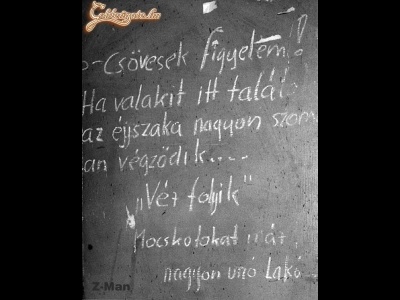 -Csövesek figyelem!
Ha valakit itt talál
az éjszaka nagyon szom
an végződik....
„Vér folyik"
Mocskotokat már
nagyon unó Lakó
Z-Man